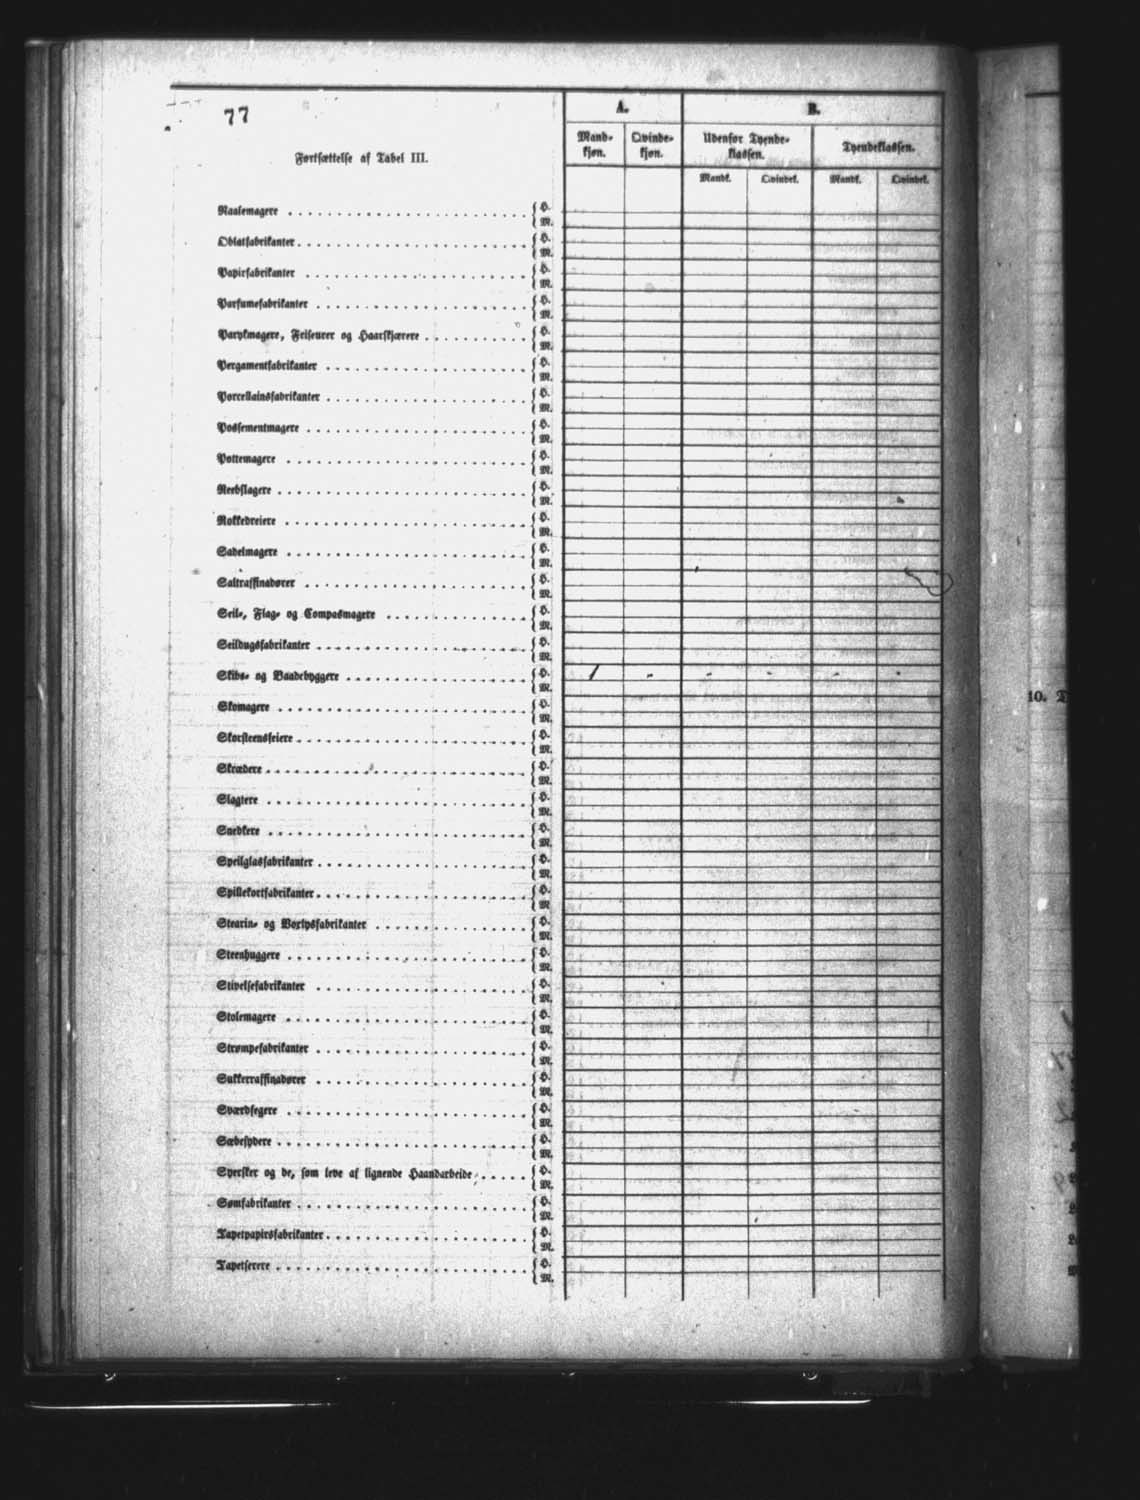 77
Fortsættelse af Tabel III.
A. B.
Mand-kjøn. Qvinde-kjøn. Udenfor Tyende-klassen. Tyendeklassen.
Mandk. Qvindek. Mandk. Qvindek.
Naalemagere { H. M.
Oblatfabrikanter { H. M.
Papirfabrikanter { H. M.
Parfumefabrikanter { H. M.
Parykmagere, Friseurer og Haarskjærere { H. M.
Pergamentfabrikanter { H. M.
Porcellainsfabrikanter { H. M.
Possementmagere { H. M.
Pottemagere { H. M.
Reebslagere { H. M.
Rokkedreiere { H. M.
Sadelmagere { H. M.
Saltraffinadører { H. M.
Seil-, Flag- og Compasmagere { H. M.
Seildugsfabrikanter { H. M.
Skibs- og Baadebyggere { H. M. / - - - - -
Skomagere { H. M.
Skorsteensfeiere { H. M.
Skrædere { H. M.
Slagtere { H. M.
Snedkere { H. M.
Speilglasfabrikanter { H. M.
Spillekortfabrikanter { H. M.
Stearin- og Voxlysfabrikanter { H. M.
Steenhuggere { H. M.
Stivelsefabrikanter { H. M.
Stolemagere { H. M.
Strømpefabrikanter { H. M.
Sukkerraffinadører { H. M.
Sværdfegere { H. M.
Sæbesydere { H. M.
Syersker og de, som leve af lignende Haandarbeide { H. M.
Sømfabrikanter { H. M.
Tapetpapirsfabrikanter { H. M.
Tapetserere { H. M.
10. T